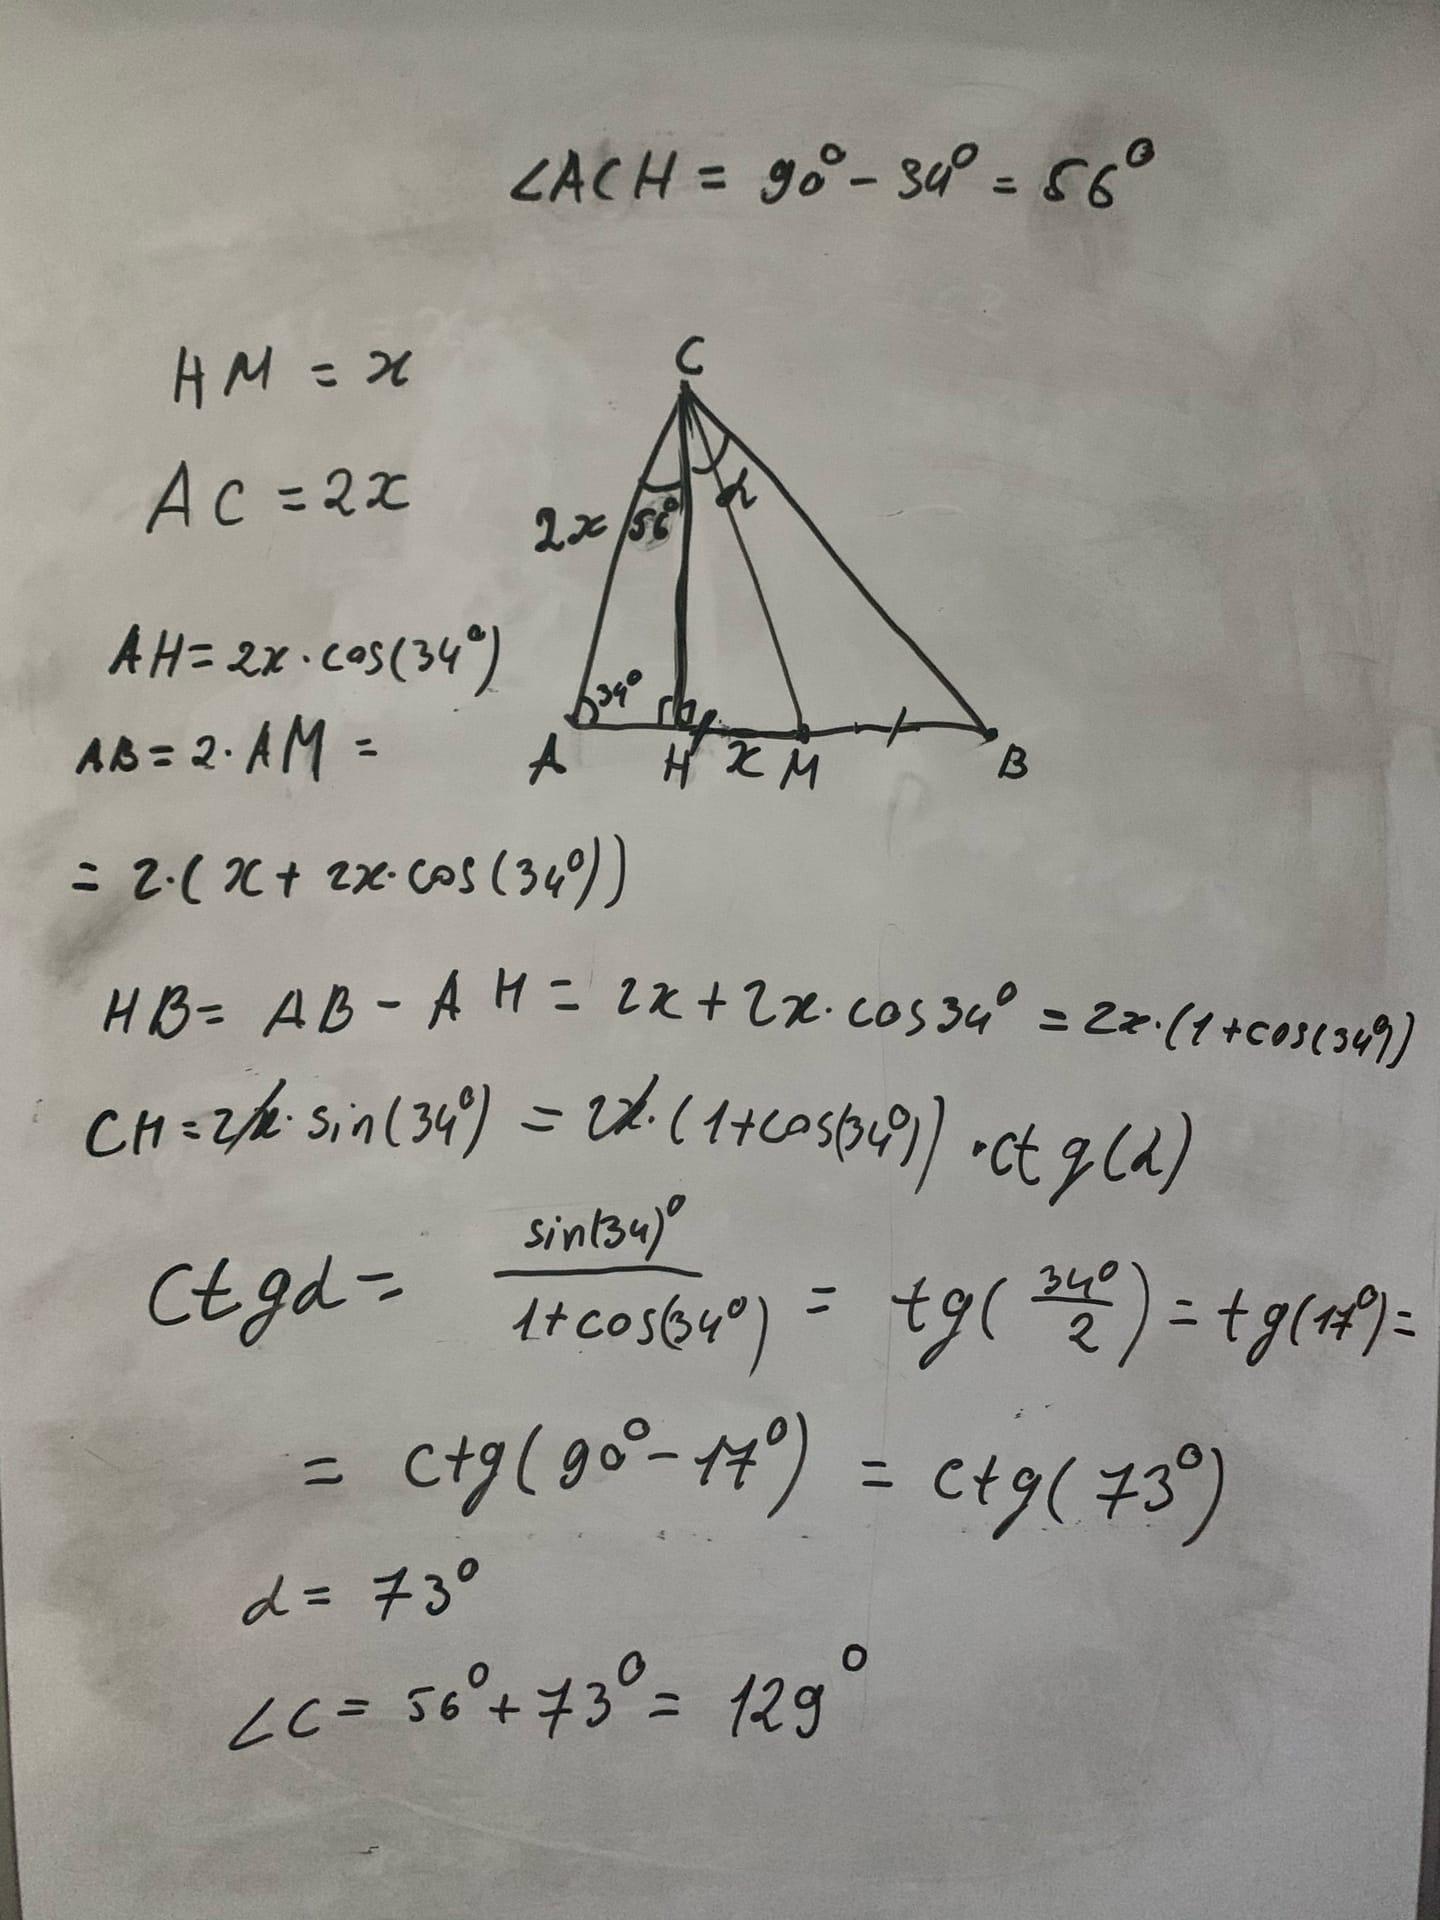 ∠ACH = 90° - 34° = 56°
HM = x
AC = 2x
AH = 2x · cos(34°)
AB = 2 · AM =
= 2·(x + 2x·cos(34°))
C
2x 56° α
34°
A H x M B
HB = AB - AH = 2x + 2x·cos34° = 2x·(1+cos(34°)
CH = 2x·sin(34°) = 2x·(1+cos(34°))·ctg(α)
ctgα = sin(34)° / 1+cos(34°) = tg(34°/2) = tg(17°) =
= ctg(90° - 17°) = ctg(73°)
α = 73°
∠C = 56° + 73° = 129°